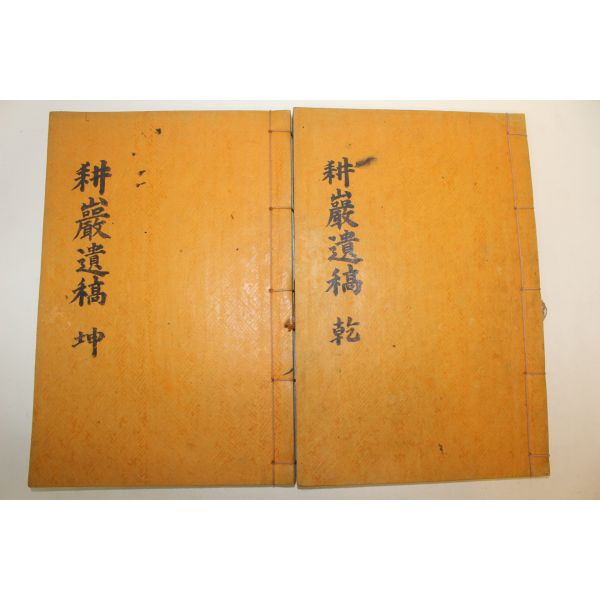 耕巖遺稿 乾
耕巖遺稿 坤